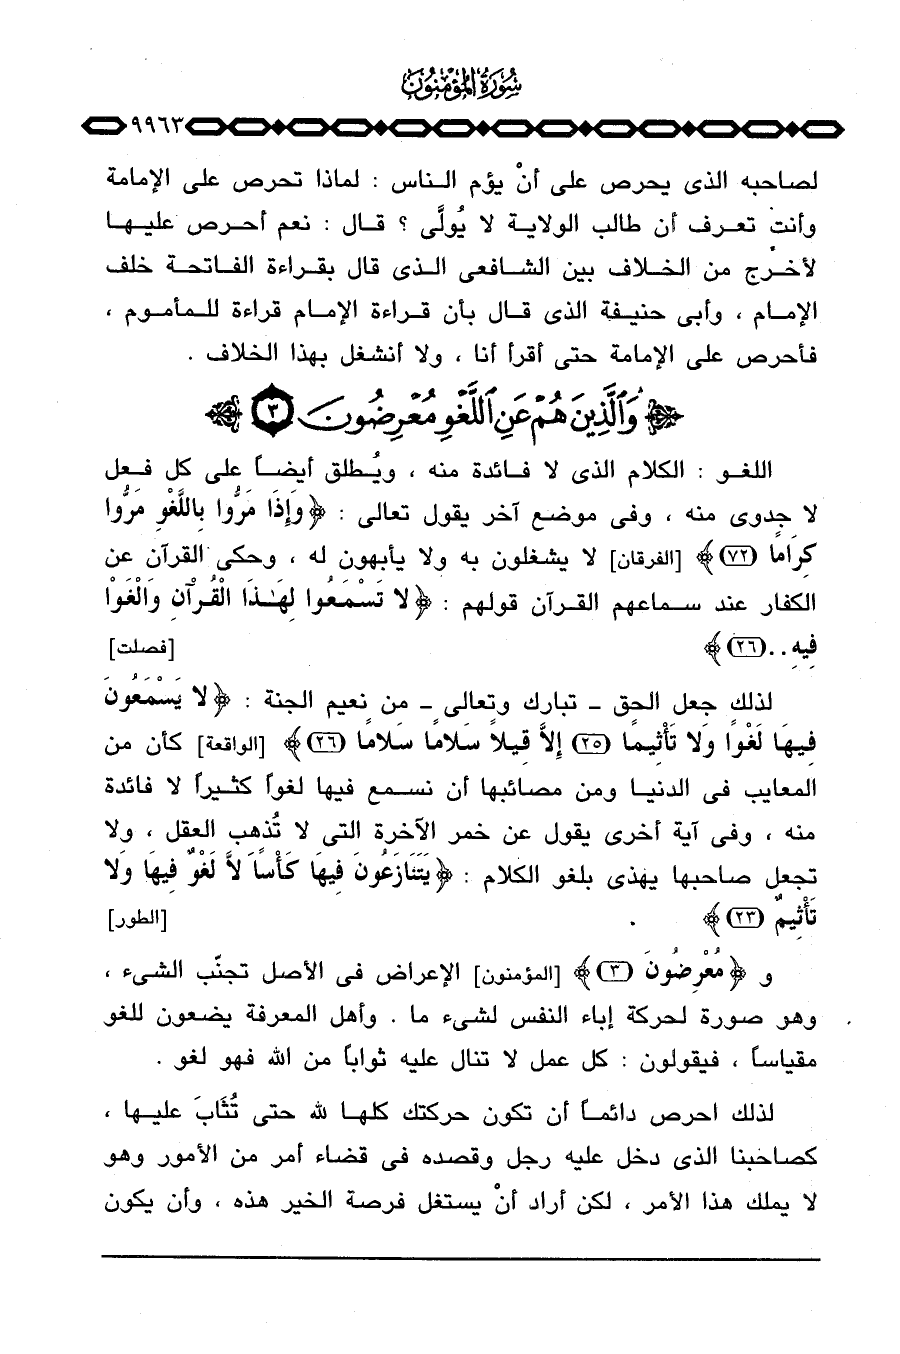 سُورَةُ المؤمِنُونَ
٩٩٦٣
لصاحبه الذى يحرص على أنْ يؤم الناس : لماذا تحرص على الإمامة
وأنت تعرف أن طالب الولاية لا يُولَّى ؟ قال : نعم أحرص عليها
لأخرج من الخلاف بين الشافعى الذى قال بقراءة الفاتحة خلف
الإمام ، وأبى حنيفة الذى قال بأن قراءة الإمام قراءة للمأموم ،
فأحرص على الإمامة حتى أقرأ أنا ، ولا أنشغل بهذا الخلاف .
﴿ وَالَّذِينَ هُمْ عَنِ اللَّغْوِ مُعْرِضُونَ ٣ ﴾
اللغو : الكلام الذى لا فائدة منه ، ويُطلق أيضاً على كل فعل
لا جدوى منه ، وفى موضع آخر يقول تعالى : ﴿ وَإِذَا مَرُّوا بِاللَّغْوِ مَرُّوا
كِرَامًا (٧٢) ﴾ [الفرقان] لا يشغلون به ولا يأبهون له ، وحكى القرآن عن
الكفار عند سماعهم القرآن قولهم : ﴿ لا تَسْمَعُوا لِهَـٰذَا الْقُرْآنِ وَالْغَوْا
فِيهِ .. (٢٦) ﴾ [فصلت]
لذلك جعل الحق - تبارك وتعالى - من نعيم الجنة : ﴿ لا يَسْمَعُونَ
فِيهَا لَغْوًا وَلا تَأْثِيمًا (٢٥) إِلاَّ قِيلاً سَلامًا سَلامًا (٢٦) ﴾ [الواقعة] كأن من
المعايب فى الدنيا ومن مصائبها أن نسمع فيها لغواً كثيراً لا فائدة
منه ، وفى آية أخرى يقول عن خمر الآخرة التى لا تُذهب العقل ، ولا
تجعل صاحبها يهذى بلغو الكلام : ﴿ يَتَنَازَعُونَ فِيهَا كَأْسًا لاَّ لَغْوٌ فِيهَا وَلا
تَأْثِيمٌ (٢٣) ﴾ . [الطور]
و ﴿ مُعْرِضُونَ (٣) ﴾ [المؤمنون] الإعراض فى الأصل تجنّب الشىء ،
وهو صورة لحركة إباء النفس لشىء ما . وأهل المعرفة يضعون للغو
مقياساً ، فيقولون : كل عمل لا تنال عليه ثواباً من الله فهو لغو .
لذلك احرص دائماً أن تكون حركتك كلها لله حتى تُثَابَ عليها ،
كصاحبنا الذى دخل عليه رجل وقصده فى قضاء أمر من الأمور وهو
لا يملك هذا الأمر ، لكن أراد أنْ يستغل فرصة الخير هذه ، وأن يكون